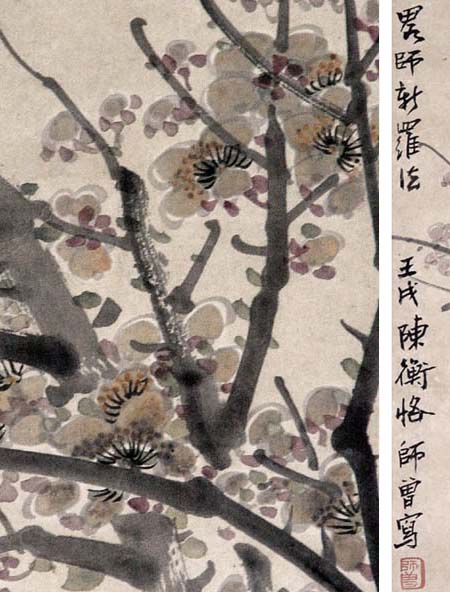 畧師新羅法 壬戌陳衡恪師曾寫
師曾